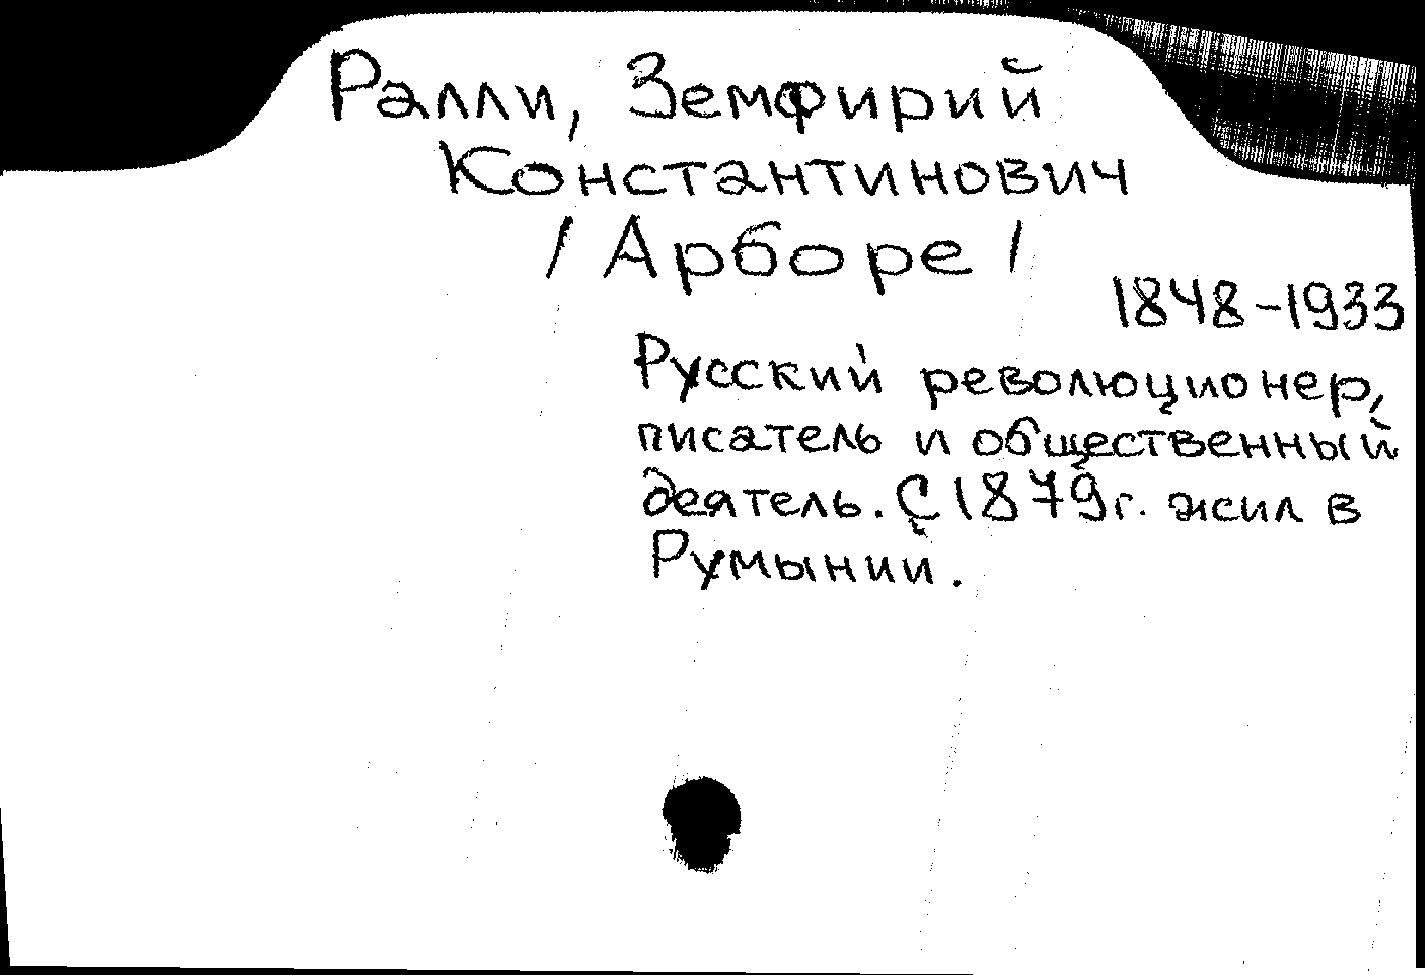 Ралли, Земфирий
Константинович
/ Арборе /
1848-1933
Русский революционер,
писатель и общественный
деятель. С 1879г. жил в
Румынии.